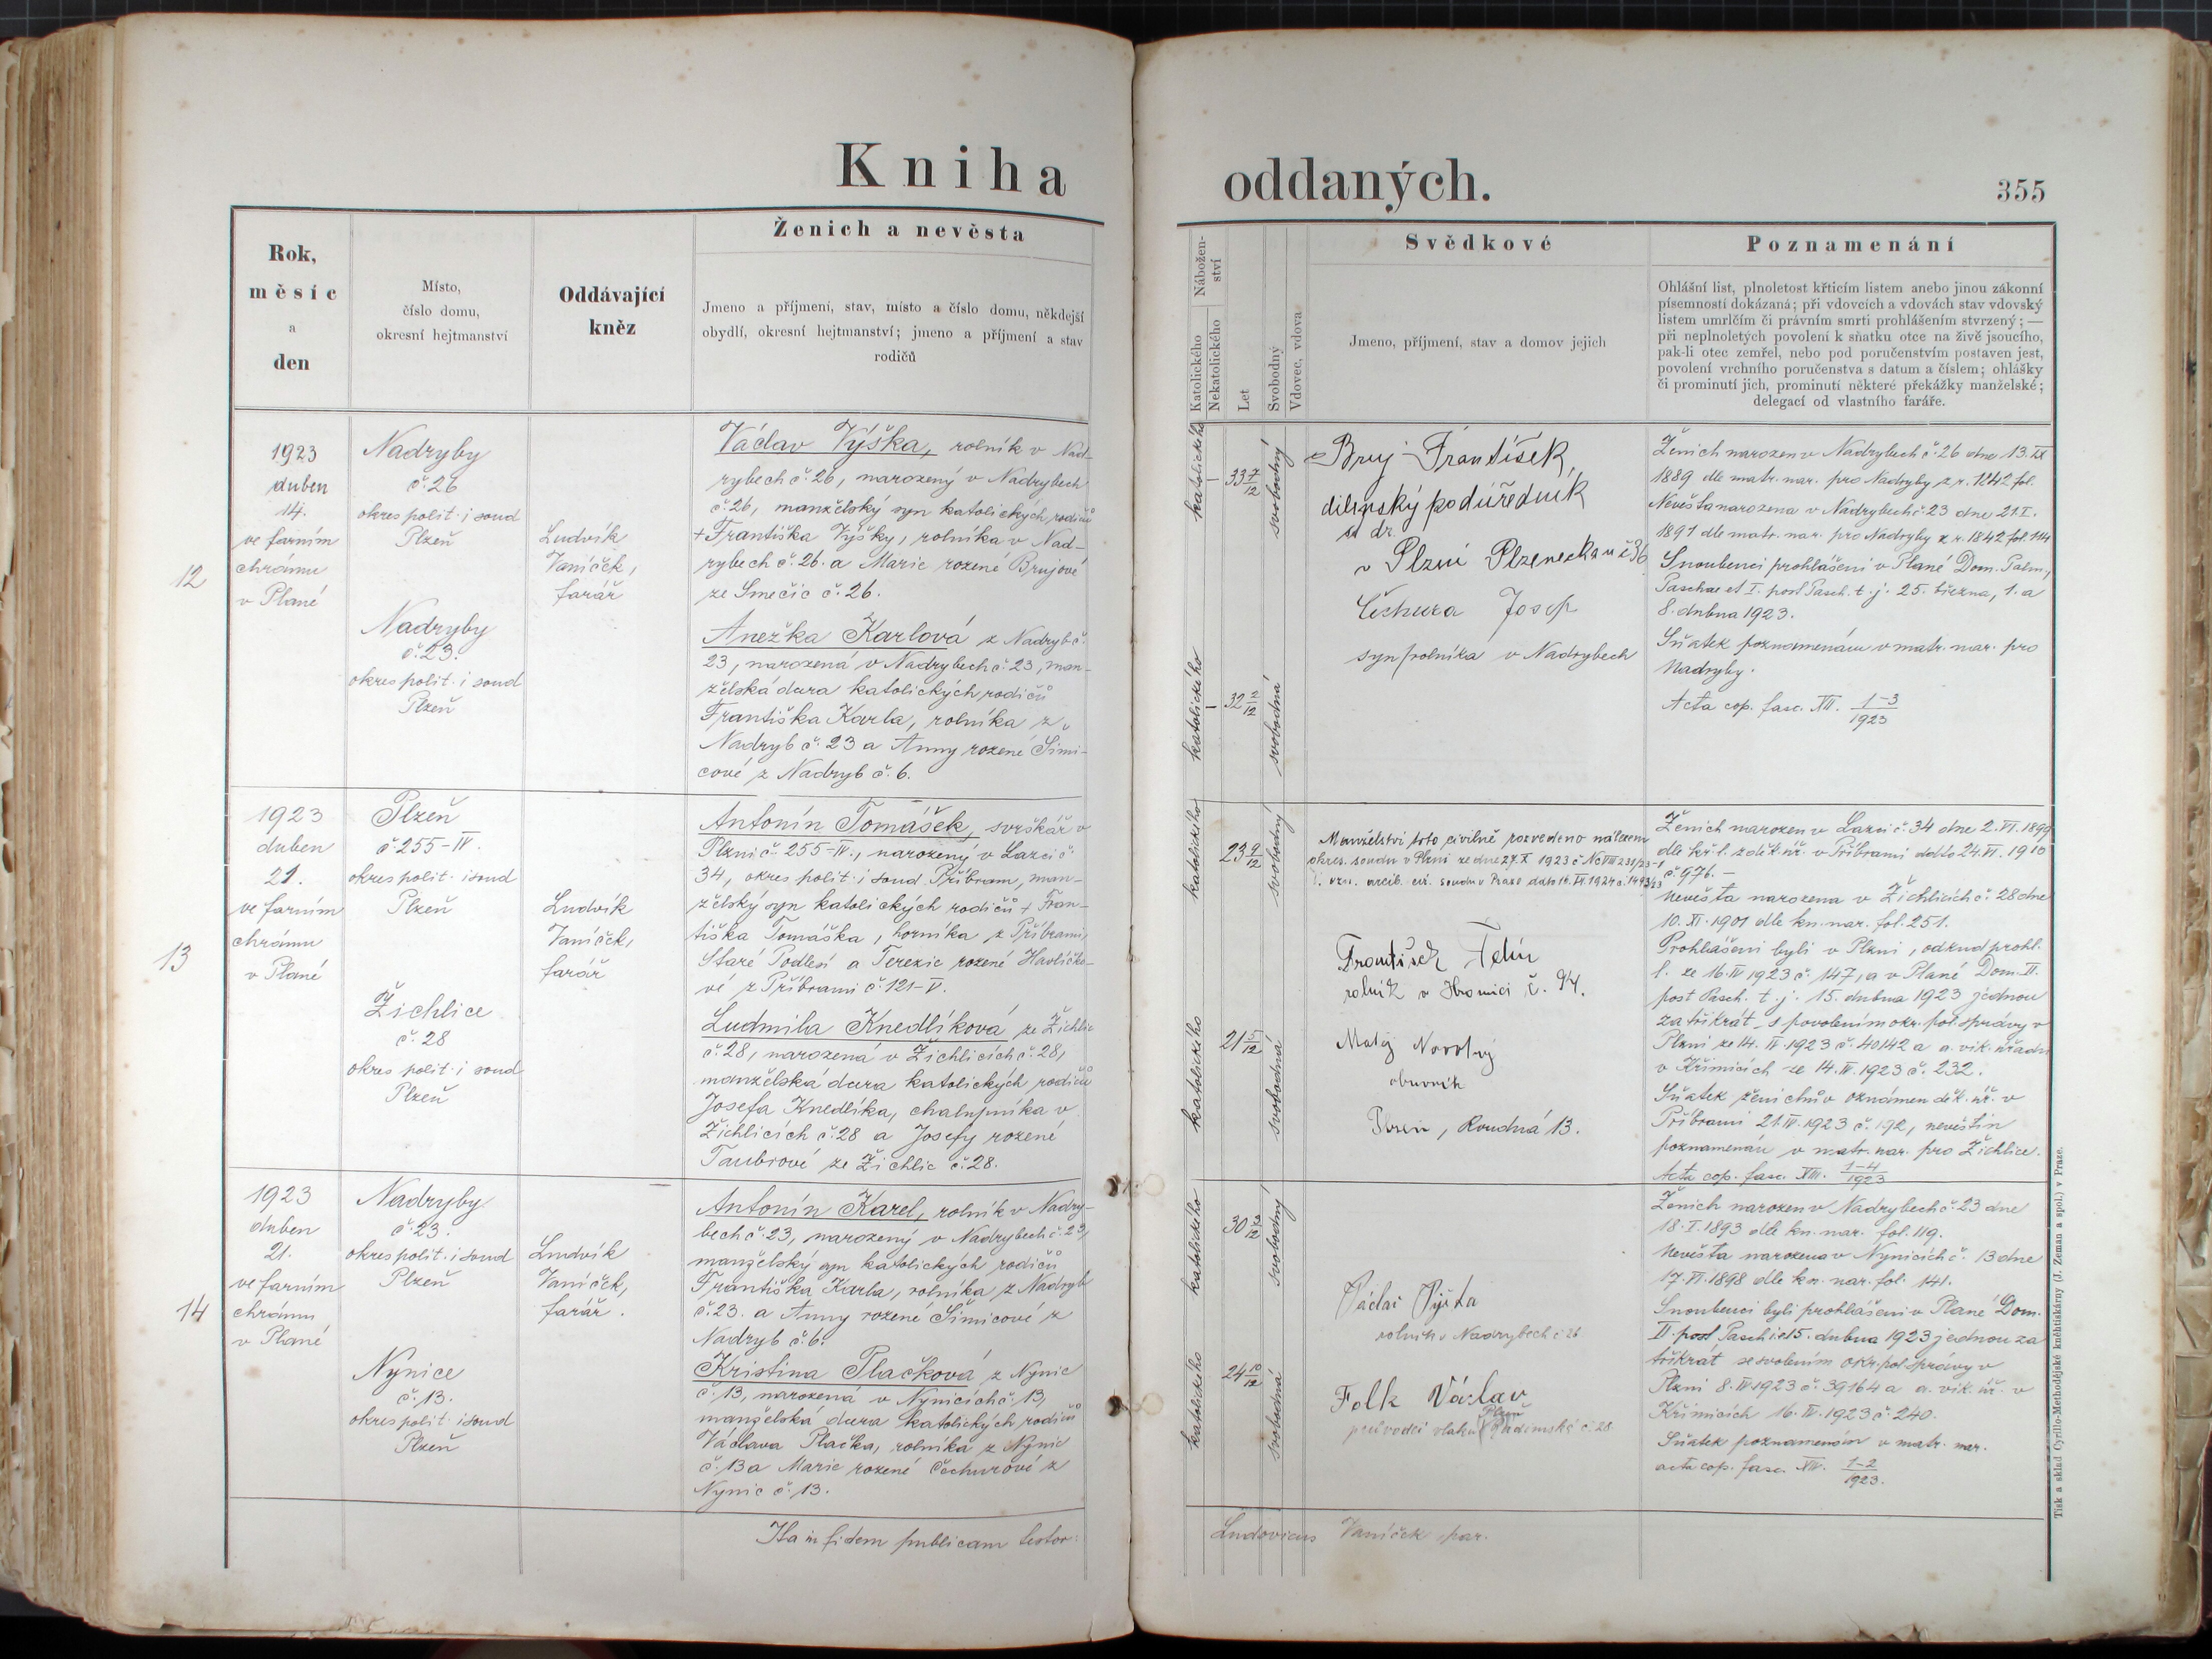 Kniha
oddaných.
355
Rok,
měsíc
a
den
Místo,
číslo domu,
okresní hejtmanství
Oddávající
kněz
Ženich a nevěsta
Jmeno a příjmení, stav, místo a číslo domu, někdejší
obydlí, okresní hejtmanství; jmeno a příjmení a stav
rodičů
Nábožen-
ství
Katolického
Nekatolického
Let
Svobodný
Vdovec, vdova
Svědkové
Jmeno, příjmení, stav a domov jejich
Poznamenání
Ohlášní list, plnoletost křticím listem anebo jinou zákonní
písemností dokázaná; při vdovcích a vdovách stav vdovský
listem umrlčím či právním smrti prohlášením stvrzený; —
při neplnoletých povolení k sňatku otce na živě jsoucího,
pak-li otec zemřel, nebo pod poručenstvím postaven jest,
povolení vrchního poručenstva s datum a číslem; ohlášky
či prominutí jich, prominutí některé překážky manželské;
delegací od vlastního faráře.
12
1923
duben
14.
ve farním
chrámu
v Plané
Nadryby
č. 26
okres polit. i soud
Plzeň
Nadryby
č. 23.
okres polit. i soud
Plzeň
Ludvík
Vaníček,
farář
Václav Výška, rolník v Nad-
rybech č. 26, narozený v Nadrybech
č. 26, manželský syn katolických rodičů
+ Františka Výšky, rolníka v Nad-
rybech č. 26. a Marie rozené Brujové
ze Smečic č. 26.
Anežka Karlová z Nadryb č.
23, narozená v Nadrybech č. 23, man-
želská dcera katolických rodičů
Františka Karla, rolníka z
Nadryb č. 23 a Anny rozené Šimi-
cové z Nadryb č. 6.
katolického
33 7/12
svobodný
katolického
32 2/12
svobodná
Bruj František
dílenský podúředník
st. dr.
v Plzni Plzenecká u č 36
Čechura Josef
syn rolníka v Nadrybech
Ženich narozen v Nadrybech č. 26 dne 13. IX
1889 dle matr. nar. pro Nadryby z r. 1842 fol.
Nevěsta narozena v Nadrybech č. 23 dne 21. I.
1891 dle matr. nar. pro Nadryby z r. 1842 fol. 114
Snoubenci prohlášeni v Plané Dom. Palm.,
Paschae et I. post Pasch. t. j. 25. března, 1. a
8. dubna 1923.
Sňatek poznamenán v matr. nar. pro
Nadryby.
Acta cop. fasc. XII. 1-3/1923
13
1923
duben
21.
ve farním
chrámu
v Plané
Plzeň
č. 255-IV.
okres polit. i soud
Plzeň
Žichlice
č. 28
okres polit. i soud
Plzeň
Ludvík
Vaníček,
farář
Antonín Tomášek, svrškář v
Plzni č. 255-IV., narozený v Lazci č.
34, okres polit. i soud Příbram, man-
želský syn katolických rodičů + Fran-
tiška Tomáška, horníka z Příbrami,
Staré Podlesí a Terezie rozené Havlíčko-
vé z Příbrami č. 121-V.
Ludmila Knedlíková ze Žichlic
č. 28, narozená v Žichlicích č. 28,
manželská dcera katolických rodičů
Josefa Knedlíka, chalupníka v
Žichlicích č. 28 a Josefy rozené
Taubrové ze Žichlic č. 28.
katolického
23 9/12
svobodný
katolického
21 5/12
svobodná
Manželství toto civilně rozvedeno nálezem
okres. soudu v Plzni ze dne 27. X 1923 č. Nc VIII 231/23-1
arcib. cír. soudu v Praze dato 16. VI. 1924 č. 1493/23
František Felín
rolník v Hromici č. 94.
Matěj Novotný
obuvník
Plzeň, Roudná 13.
Ženich narozen v Lazci č. 34 dne 2. VI. 1899
dle kř. l. z děk. úř. v Příbrami ddto 24. VI. 1910
č. 976. —
Nevěsta narozena v Žichlicích č. 28 dne
10. XI. 1901 dle kn. nar. fol. 251.
Prohlášeni byli v Plzni, odkud prohl.
l. ze 16. IV 1923 č. 147, a v Plané Dom. II.
post Pasch. t. j. 15. dubna 1923 jednou
za třikrát s povolením okr. pol. správy v
Plzni ze 14. IV. 1923 č. 40142 a a. vik. úřadu
v Křimicích ze 14. IV. 1923 č. 232.
Sňatek ženichův oznámen děk. úř. v
Příbrami 21. IV. 1923 č. 192, nevěstin
poznamenán v matr. nar. pro Žichlice.
Acta cop. fasc. XIII. 1-4/1923
14
1923
duben
21.
ve farním
chrámu
v Plané
Nadryby
č. 23.
okres polit. i soud
Plzeň
Nynice
č. 13.
okres polit. i soud
Plzeň
Ludvík
Vaníček,
farář.
Antonín Karel, rolník v Nadry-
bech č. 23, narozený v Nadrybech č. 23,
manželský syn katolických rodičů
Františka Karla, rolníka z Nadryb
č. 23. a Anny rozené Šimicové z
Nadryb č. 6.
Kristina Plačková z Nynic
č. 13, narozená v Nynicích č. 13,
manželská dcera katolických rodičů
Václava Plačka, rolníka z Nynic
č. 13 a Marie rozené Čechurové z
Nynic č. 13.
katolického
30
svobodný
katolického
24 10/12
svobodná
Václav Výška
rolník v Nadrybech č 26
Folk Václav
Plzeň
průvodčí vlaku č. 28.
Ženich narozen v Nadrybech č. 23 dne
18. I. 1893 dle kn. nar. fol. 119.
Nevěsta narozena v Nynicích č. 13 dne
17. VI. 1898 dle kn. nar. fol. 141.
Snoubenci byli prohlášeni v Plané Dom.
II. post Pasch. i e 15. dubna 1923 jednou za
třikrát se svolením okr. pol. správy v
Plzni 8. IV 1923 č. 39164 a a. vik. úř. v
Křimicích 16. IV. 1923 č. 240.
Sňatek poznamenán v matr. nar.
acta cop. fasc. XII. 1-2/1923.
Ita in fidem publicam testor:
Ludovicus Vaníček par.
Tisk a sklad Cyrillo-Methodějské knihtiskárny (J. Zeman a spol.) v Praze.